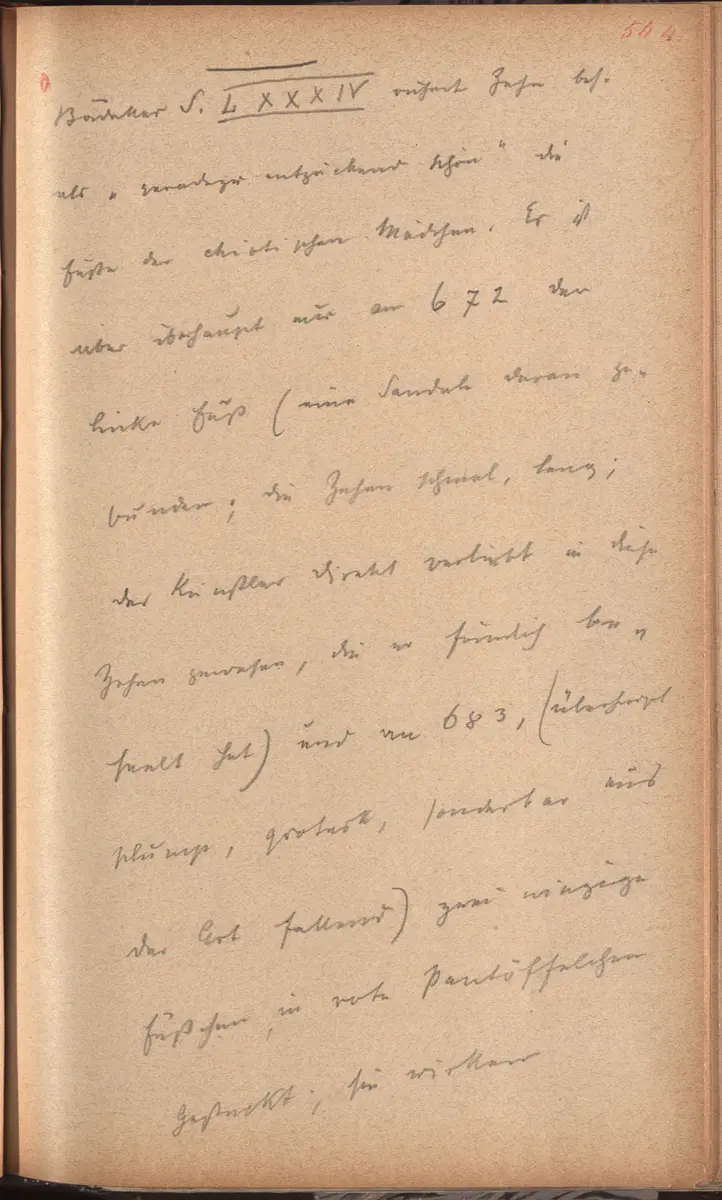 544
Bädeker S. LXXXIV rühmt Zehn bes.
als „geradezu entzückend schön" die
Füße der chiotischen Mädchen. Es ist
aber überhaupt nur an 672 der
linke Fuß (eine Sandale daran ge-
bunden; die Zehen schmal, lang;
der Künstler direkt verliebt in diese
Zehen gewesen, die er förmlich be-
seelt hat) und an 683, (überhaupt
plump, grotesk, sonderbar aus
der Art fallend) zwei winzige
Füßchen in rote Pantöffelchen
gesteckt; sie wirken